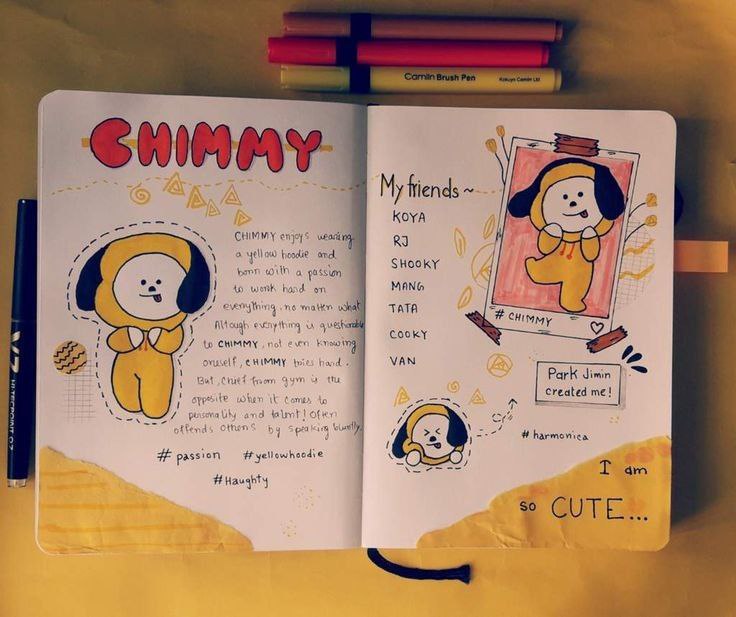 Camlin Brush Pen
Kokuyo Camlin Ltd
V7
HI-TECPOINT 0.7
CHIMMY
CHIMMY enjoys wearing
a yellow hoodie and
born with a passion
to work hard on
everything, no matter what
Altough everything is questionable
to CHIMMY, not even knowing
oneself, CHIMMY tries hard.
But, chief from gym is the
opposite when it comes to
personality and talent! Often
offends others by speaking bluntly.
#passion #yellowhoodie
#Haughty
My friends~
KOYA
RJ
SHOOKY
MANG
TATA
COOKY
VAN
# CHIMMY
Park Jimin
created me!
#harmonica
I am
so CUTE...